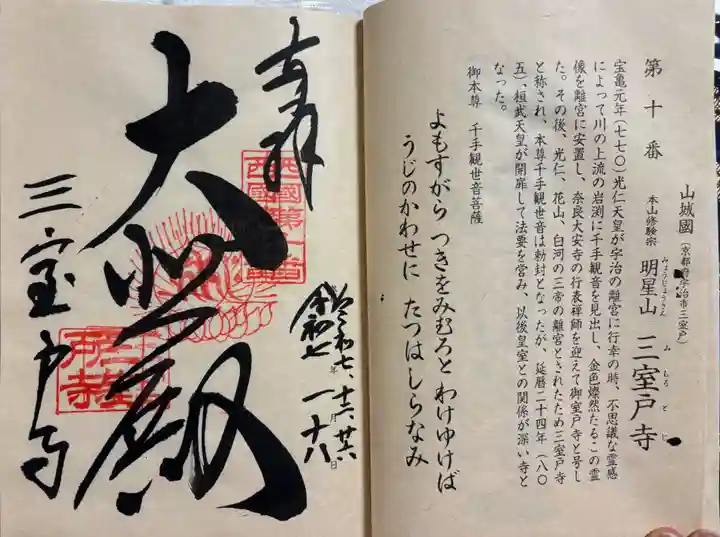 第十番
山城國（京都府宇治市三室戸）
本山修験宗 明星山 三室戸寺
みょうじょうざん みむろとじ
宝亀元年（七七〇）光仁天皇が宇治の離宮に行幸の時、不思議な霊感
によって川の上流の岩渕に千手観音を見出し、金色燦然たるこの霊
像を離宮に安置し、奈良大安寺の行表禅師を迎えて御室戸寺と号し
た。その後、光仁、花山、白河の三帝の離宮とされたため三室戸寺
と称され、本尊千手観世音は勅封となったが、延暦二十四年（八〇
五）、桓武天皇が開扉して法要を営み、以後皇室との関係が深い寺と
なった。
御本尊 千手観世音菩薩
よもすがら つきをみむろと わけゆけば
うじのかわせに たつはしらなみ
奉拝
大悲殿
三室戸寺
令和七年
月
日
一十八
西國第十番
三室戸寺